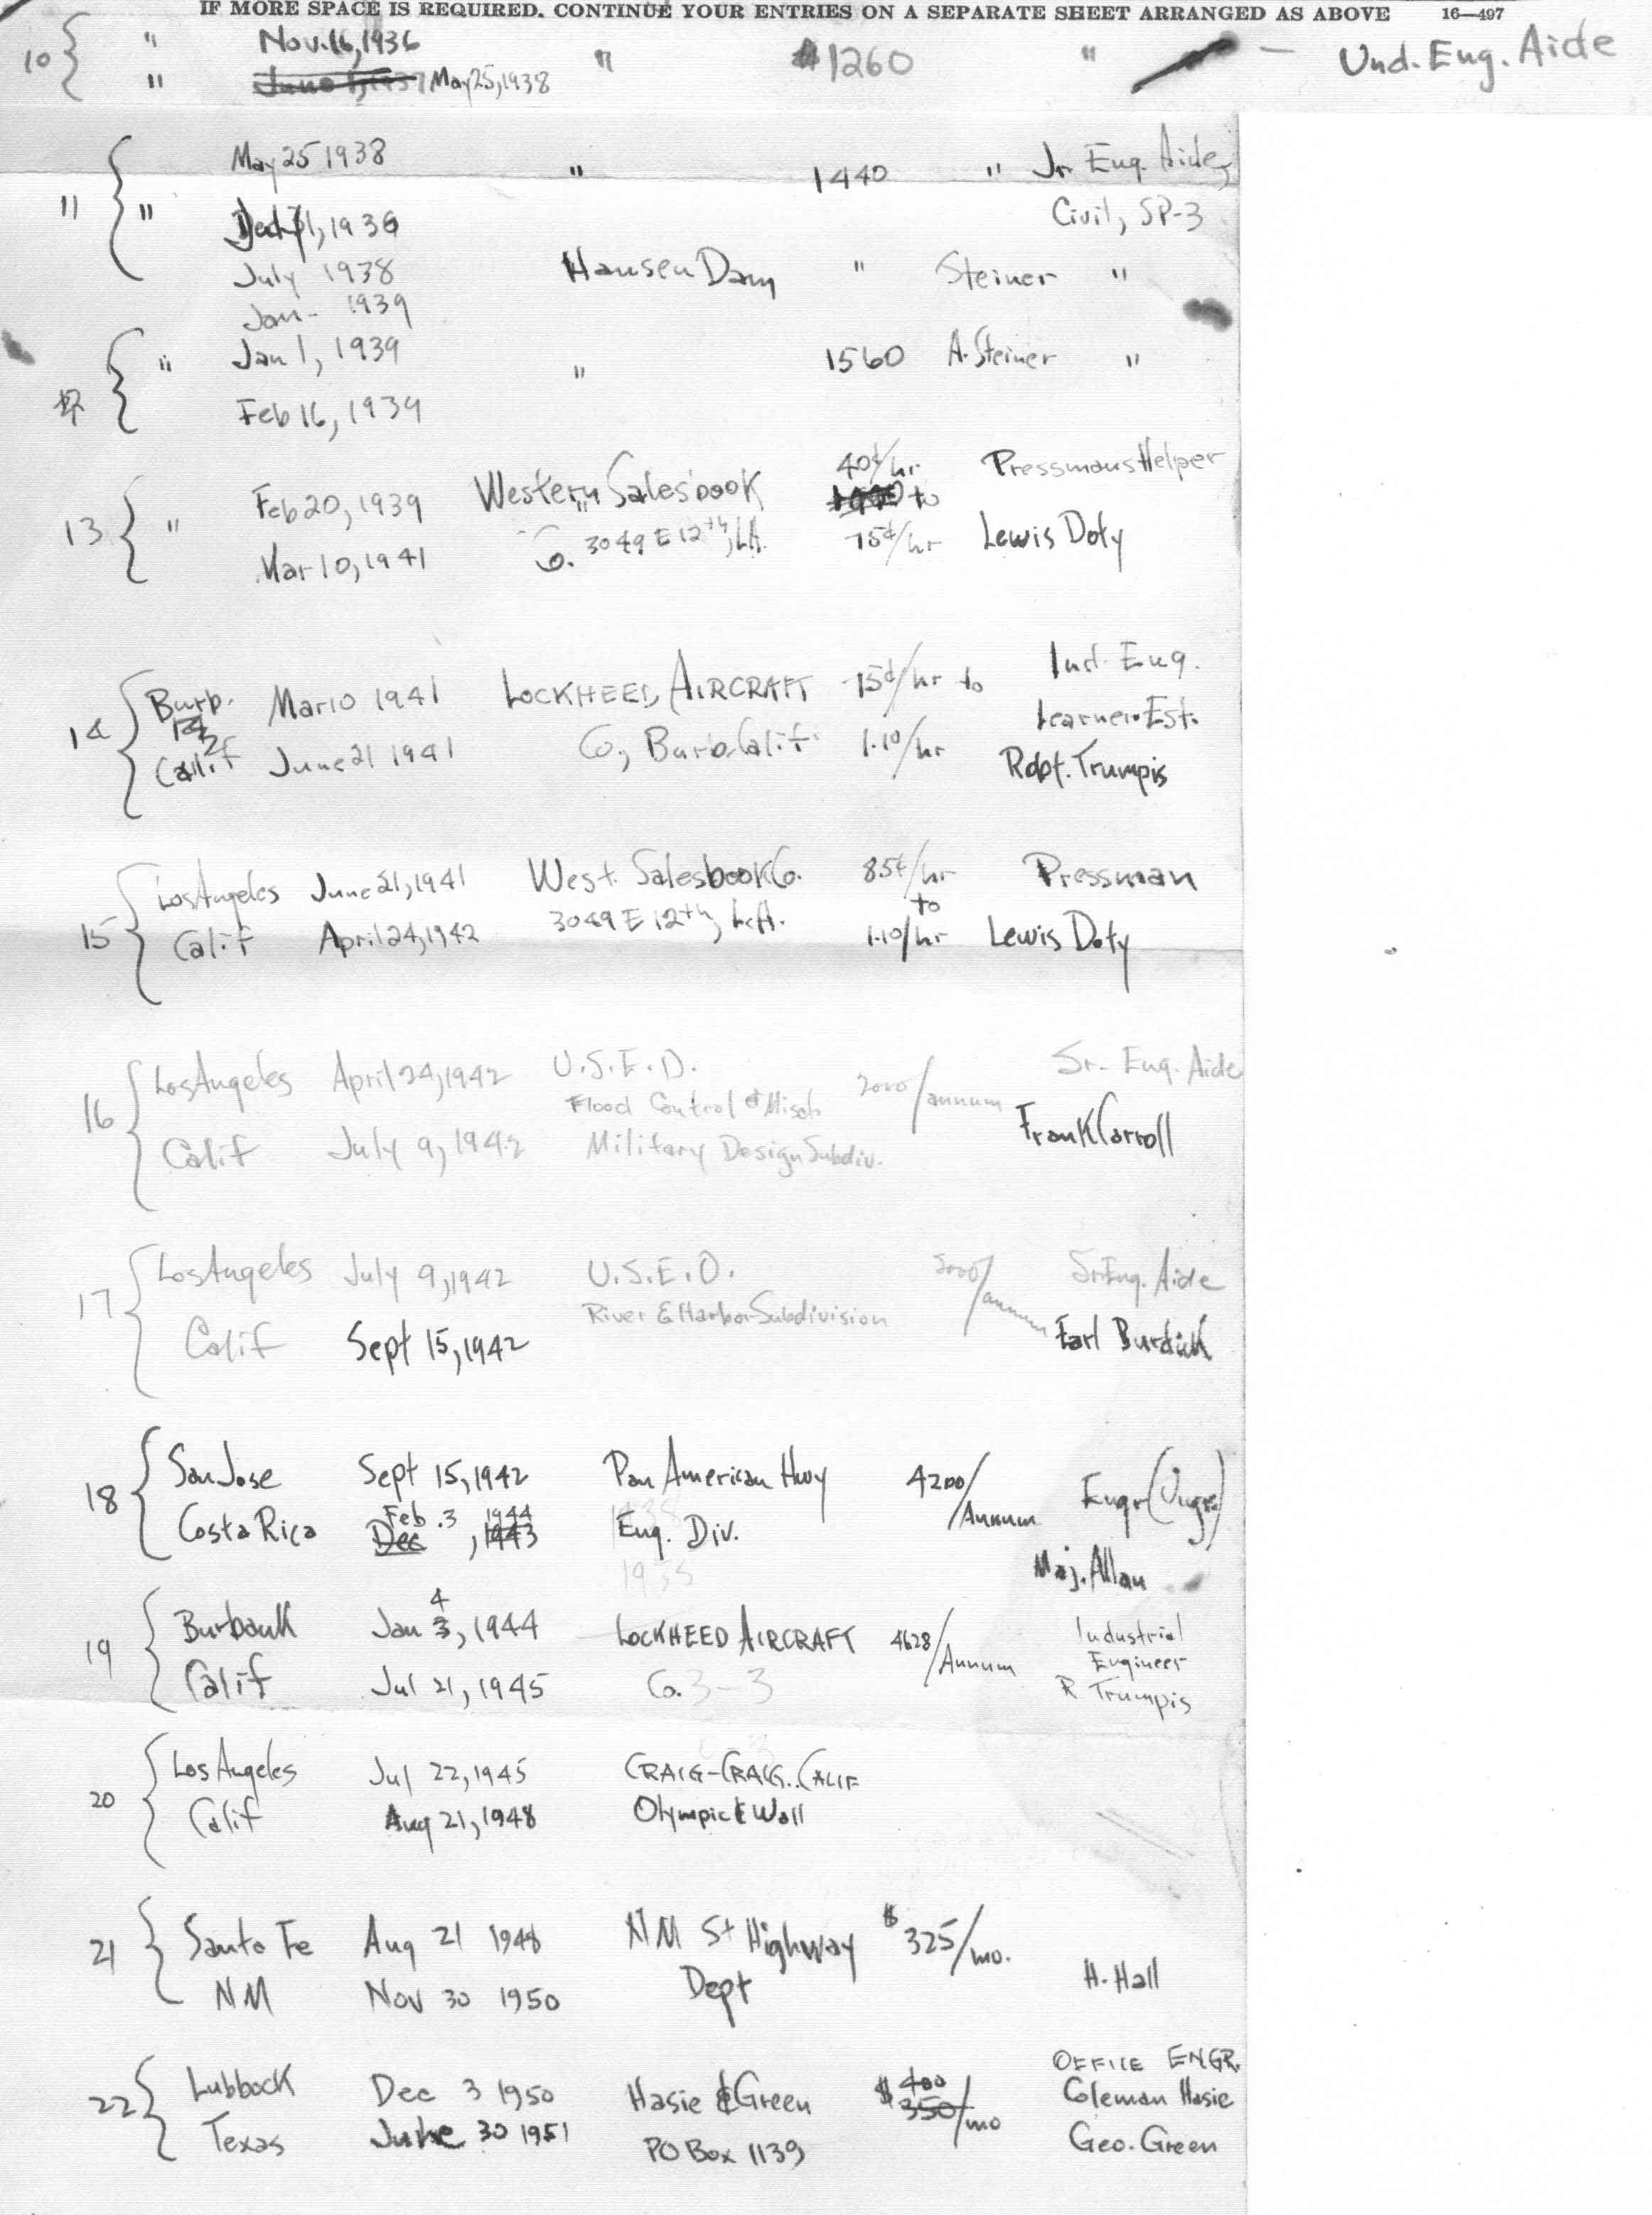 IF MORE SPACE IS REQUIRED. CONTINUE YOUR ENTRIES ON A SEPARATE SHEET ARRANGED AS ABOVE 16—497
10 " Nov. 16, 1936 " $1260 " — Und. Eng. Aide
" June 1, 1937 May 25, 1938
May 25 1938 " 1440 " Jr. Eng. Aide,
11 " 1, 1938 Civil, SP-3
July 1938 Hansen Dam " Steiner "
Jan- 1939
" Jan 1, 1939 " 1560 A. Steiner "
12 Feb 16, 1939
40¢/hr Pressmans Helper
13 " Feb 20, 1939 Western Salesbook to
Mar 10, 1941 Co. 3049 E 12th, LA. 75¢/hr Lewis Doty
Ind. Eng.
14 Burb. Mar 10 1941 LOCKHEED AIRCRAFT 75¢/hr to
Learner Est.
Calif June 21 1941 Co, Burb. Calif. 1.10/hr Robt. Trumpis
Los Angeles June 21, 1941 West. Salesbook Co. 85¢/hr Pressman
to
15 Calif April 24, 1942 3049 E 12th, L.A. 1.10/hr Lewis Doty
Los Angeles April 24, 1942 U.S.E.D. 2000/annum Sr. Eng. Aide
16 Flood Control & Misc.
Calif July 9, 1942 Military Design Subdiv. Frank Carroll
Los Angeles July 9, 1942 U.S.E.D. 2000/annum Sr Eng. Aide
17 River & Harbor Subdivision
Calif Sept 15, 1942 Earl Burdick
18 San Jose Sept 15, 1942 Pan American Hwy 4200/Annum Engr
Feb. 3 1944
Costa Rica Dec , 1943 Eng. Div.
Maj. Allan
4
Burbank Jan 3, 1944 LOCKHEED AIRCRAFT 4628/Annum Industrial
19 Engineer
Calif Jul 21, 1945 Co. 3-3 R Trumpis
Los Angeles Jul 22, 1945 CRAIG-CRAIG..CALIF
20 Calif Aug 21, 1948 Olympic & Wall
21 Santa Fe Aug 21 1948 NM St Highway $325/mo.
NM Nov 30 1950 Dept H. Hall
OFFICE ENGR.
400
22 Lubbock Dec 3 1950 Hasie & Green $350/mo Coleman Hasie
Texas June 30 1951 PO Box 1139 Geo. Green